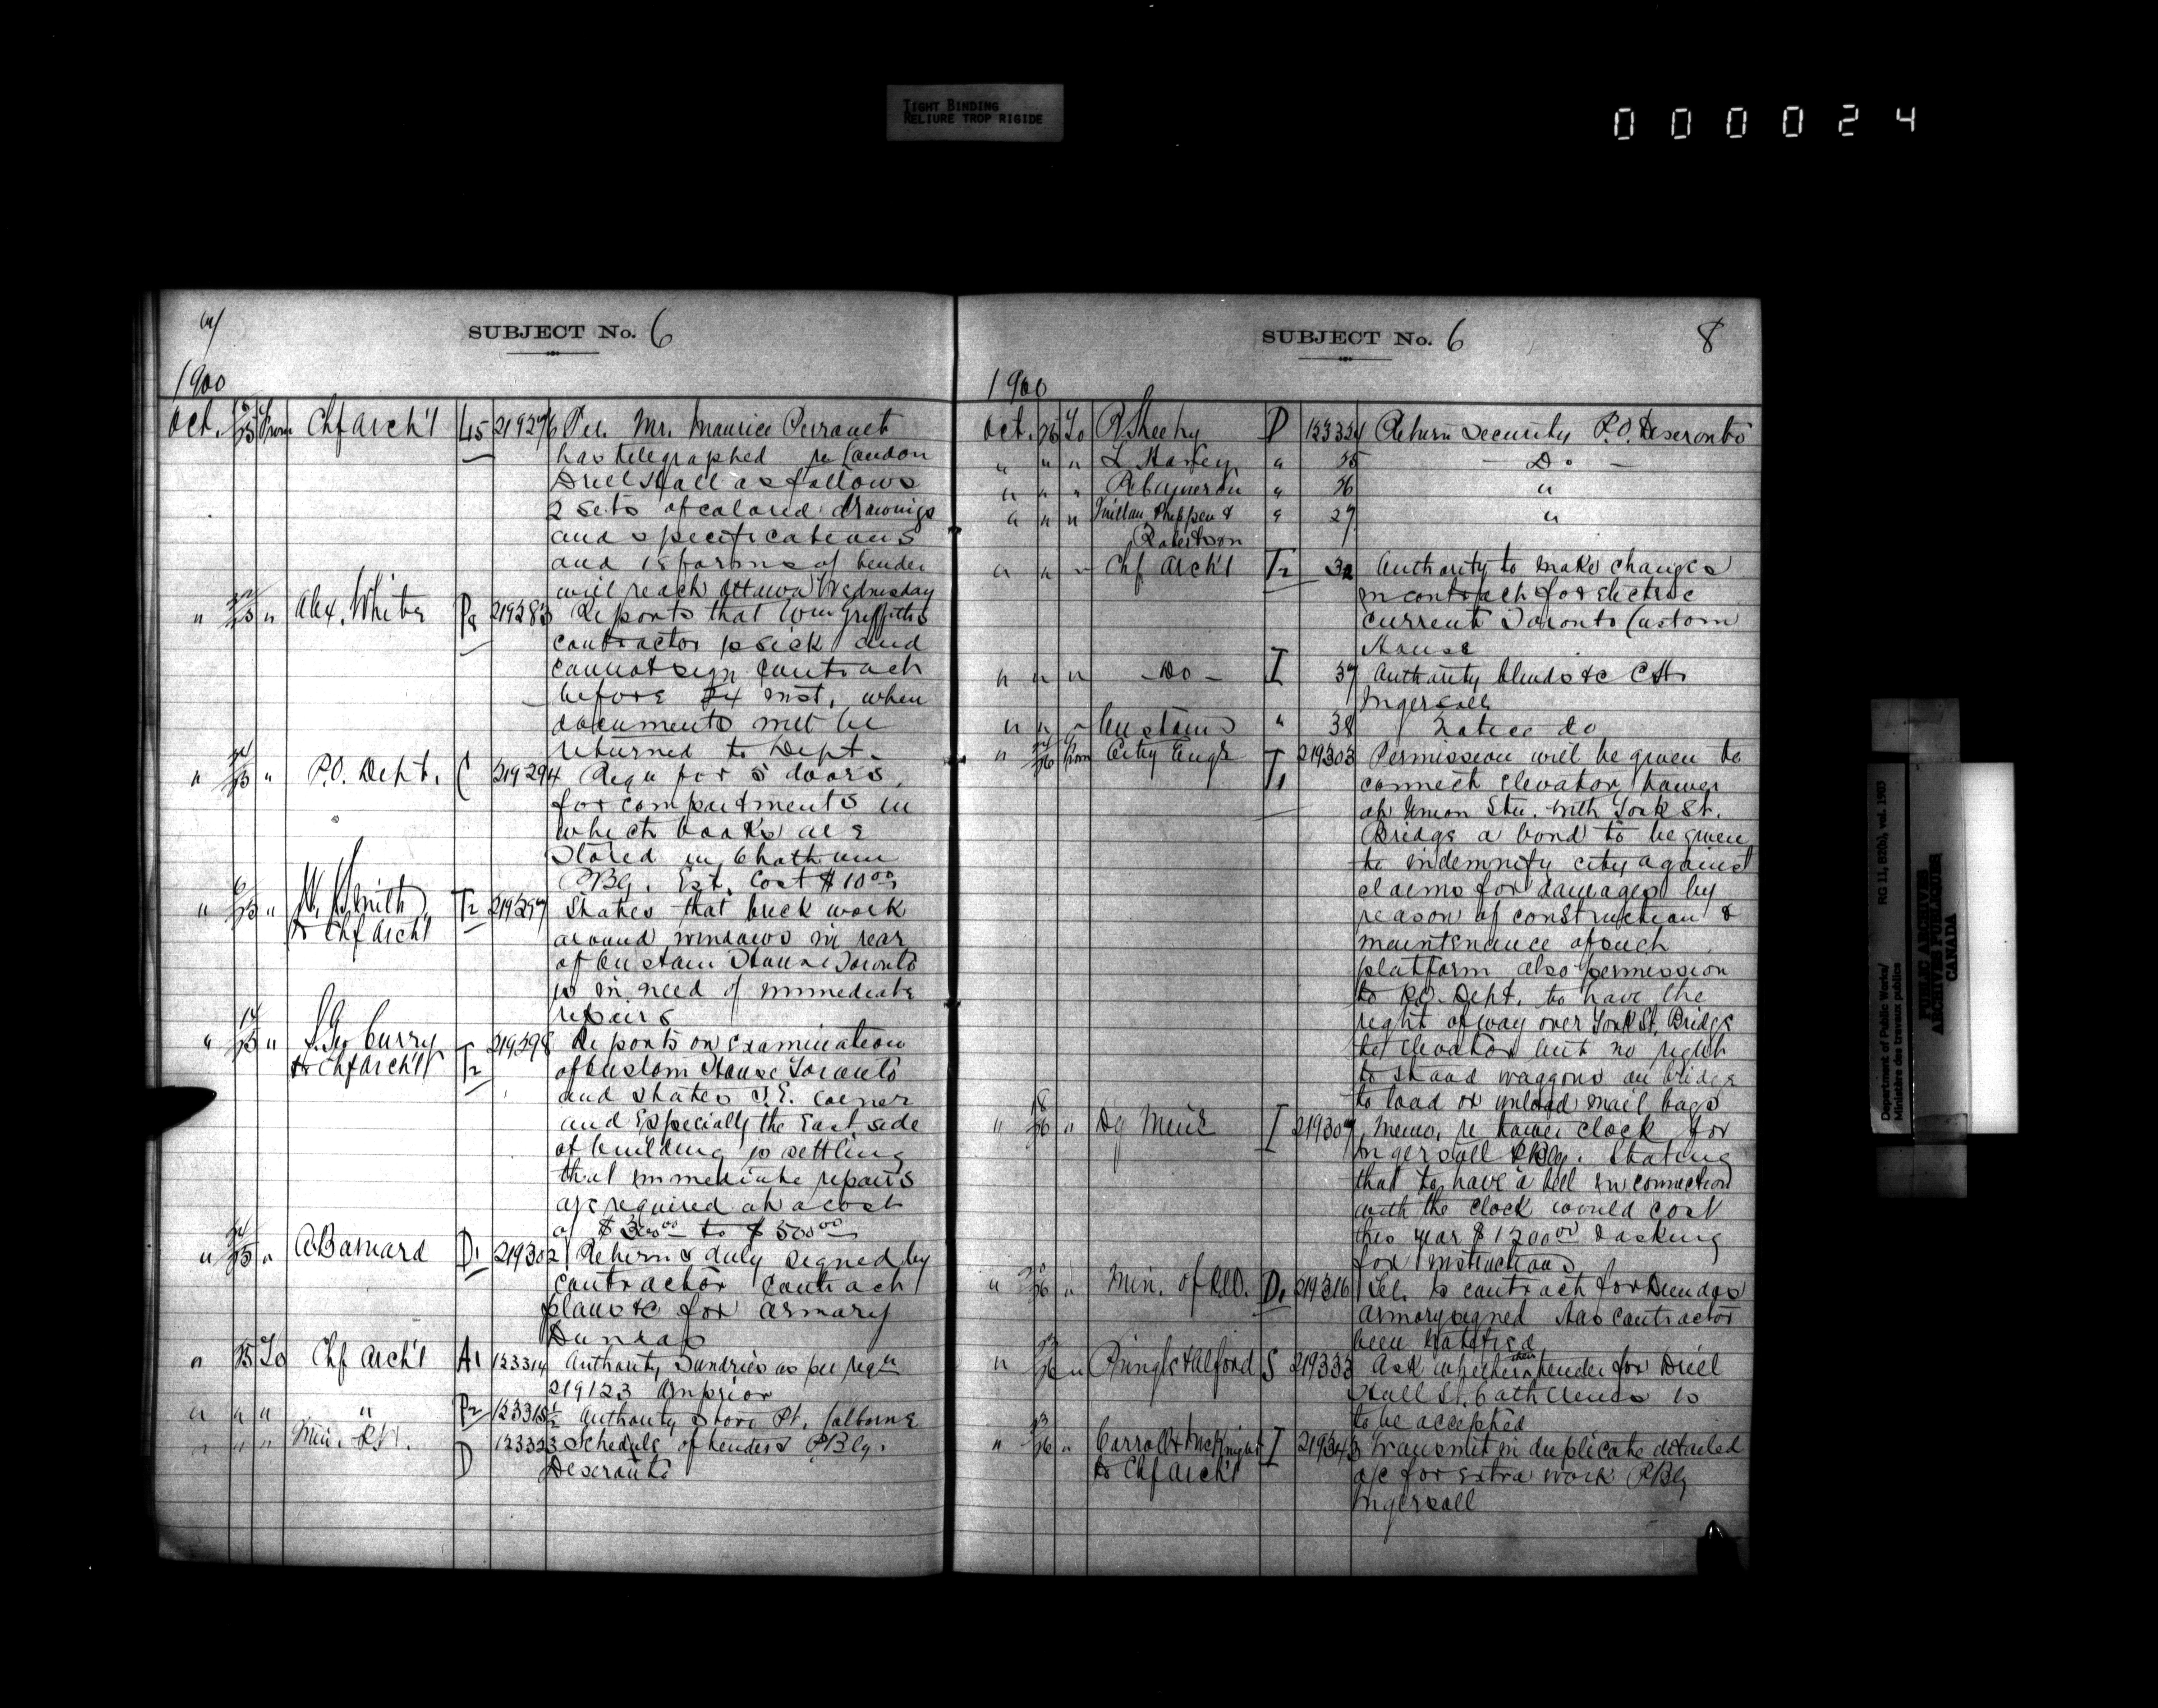 TIGHT BINDING
RELIURE TROP RIGIDE
000024
SUBJECT No. 6
1900
Oct. 25 From Chf Arch't L5 219276 Per. Mr. Maurice Perrault
has telegraphed re London
Drill Hall as follows
2 sets of colored drawings
and specifications
and 18 forms of tender
will reach Ottawa Wednesday
" 25 " Alex. White P2 219283 Reports that Wm Griffiths
contractor is sick and
cannot sign contract
before 24 inst, when
documents will be
returned to Dept.
" 25 " P.O. Dept. C 219294 Requ for 5 doors
for compartments in
which books are
stored in Chatham
PBg. Est. Cost $10.00
" 25 " W. Smith T2 219297 States that brick work
to Chf Arch't around windows in rear
of Custom House Toronto
is in need of immediate
repairs
" 25 " S. Geo Curry T2 219298 Reports on examination
to Chf Arch't of Custom House Toronto
and states S.E. corner
and Especially the East side
of building is settling
that immediate repairs
are required at a cost
of $300.00 to $500.00
" 25 " C Barnard D1 219302 Returns duly signed by
contractor contract
plans &c for armory
Dundas
" 25 To Chf Arch't A1 123314 Authority Sundries as per reqn
219123 Arnprior
" " " " P2 123318½ Authority stove Pt. Colborne
" " " Min. D 123323 Schedule of tenders PBlg.
Deseronto
SUBJECT No. 6 8
1900
Oct. 26 To R Sheehy D 123324 Return security P.O. Deseronto
" " " " 25 - Do -
" " " R Cameron " 26 "
" " " Phippen & " 27 "
Robertson
" " " Chf Arch't T2 32 Authority to make changes
in contract for electric
current Toronto Custom
House
" " " - Do - I 37 Authority blinds &c C.H.
Ingersoll
" " " Customs " 38 Notice do
" 26 From City Engr T1 219303 Permission will be given to
connect elevator tower
at Union Stn. with York St.
Bridge a bond to be given
to indemnify city against
claims for damages by
reason of construction &
maintenance of such
platform also permission
to P.O. Dept. to have the
right of way over York St. Bridge
to elevator but no right
to stand waggons on bridge
to load or unload mail bags
" 26 " I 219307 Memo. re tower clock for
Ingersoll PBlg. Stating
that to have a bell in connection
with the clock would cost
this year $1200.00 & asking
for instructions
" 26 " Min. of D1 219316 Tel. Is contract for Dundas
armory signed Has contractor
been notified
" 26 " Pringle & Alford S 219333 Ask whether their tender for Drill
Hall St. Catherines is
to be accepted
" 26 " Carroll & McKnight I 219343 Transmit in duplicate detailed
to Chf Arch't a/c for extra work PBlg
Ingersoll
Department of Public Works/ RG 11, B2(a), vol. 1903
Ministère des travaux publics
PUBLIC ARCHIVES
ARCHIVES PUBLIQUES
CANADA